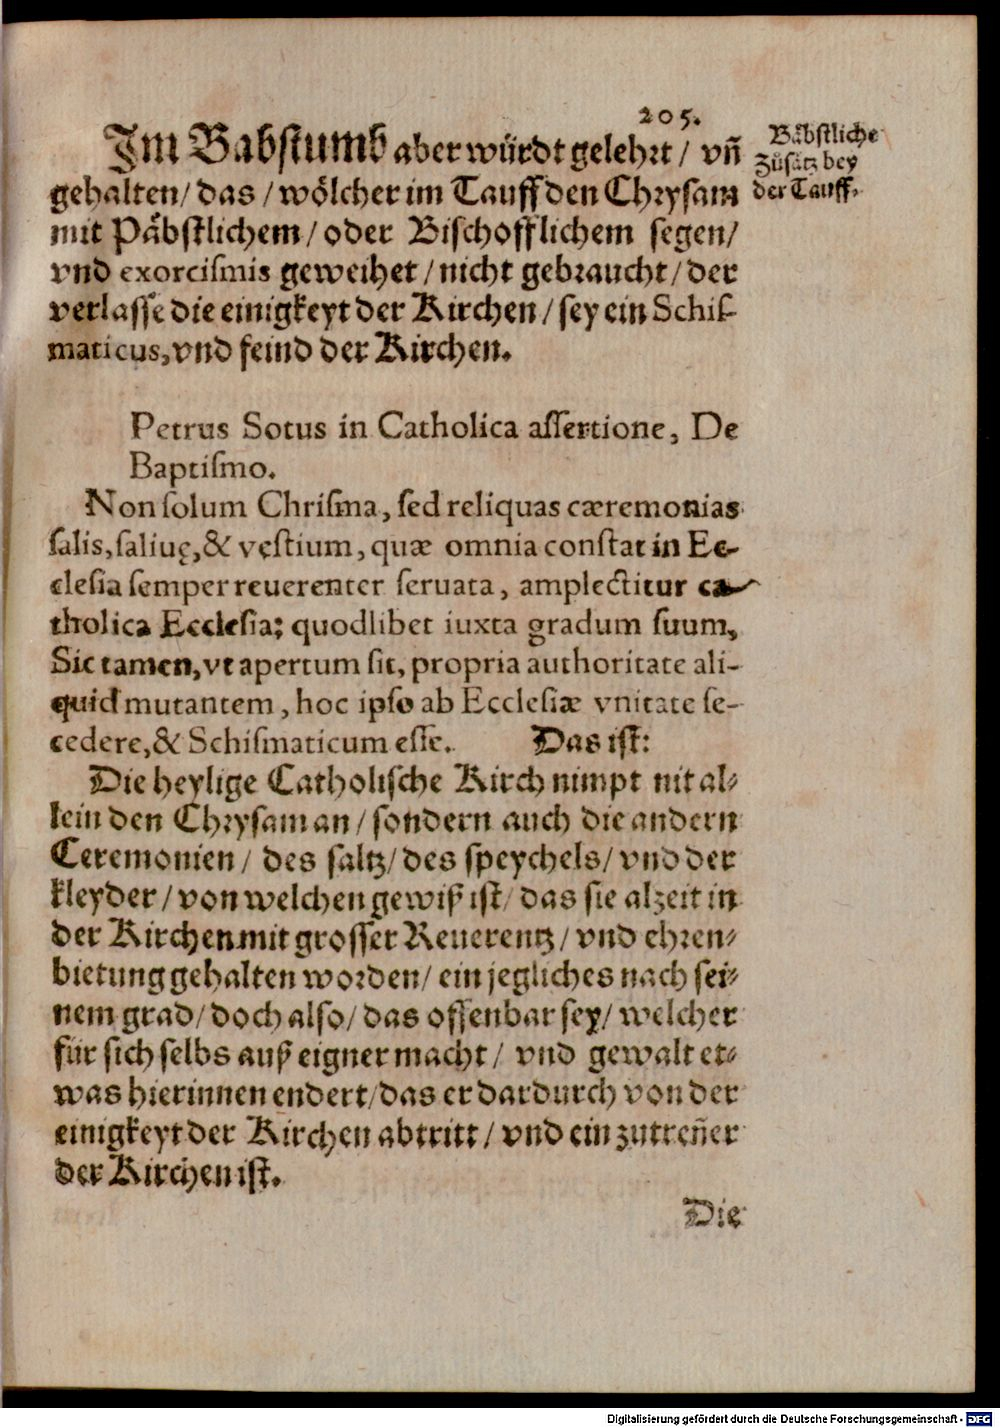 205.
Im Babstumb aber würdt gelehrt / vñ
gehalten / das / wölcher im Tauff den Chrysam
mit Päbstlichem / oder Bischofflichem segen /
vnd exorcismis geweihet / nicht gebraucht / der
verlasse die einigkeyt der Kirchen / sey ein Schiſ-
maticus, vnd feind der Kirchen.
Bäbstliche
Zůsätz bey
der Tauff.
Petrus Sotus in Catholica aſſertione, De
Baptiſmo.
Non ſolum Chriſma, ſed reliquas cæremonias
ſalis, ſaliuę, & vęſtium, quæ omnia conſtat in Ec-
cleſia ſemper reuerenter ſeruata, amplectitur ca-
tholica Eccleſia; quodlibet iuxta gradum ſuum,
Sic tamen, vt apertum ſit, propria authoritate ali-
quid mutantem, hoc ipſo ab Eccleſiæ vnitate ſe-
cedere, & Schiſmaticum eſſe. Das ist:
Die heylige Catholische Kirch nimpt nit al-
lein den Chrysam an / sondern auch die andern
Ceremonien / des saltz / des speychels / vnd der
kleyder / von welchen gewiß ist / das sie alzeit in
der Kirchen mit grosser Reuerentz / vnd ehren-
bietung gehalten worden / ein jegliches nach sei-
nem grad / doch also / das offenbar sey / welcher
für sich selbs auß eigner macht / vnd gewalt et-
was hierinnen endert / das er dardurch von der
einigkeyt der Kirchen abtritt / vnd ein zutreñer
der Kirchen ist.
Die
Digitalisierung gefördert durch die Deutsche Forschungsgemeinschaft - DFG